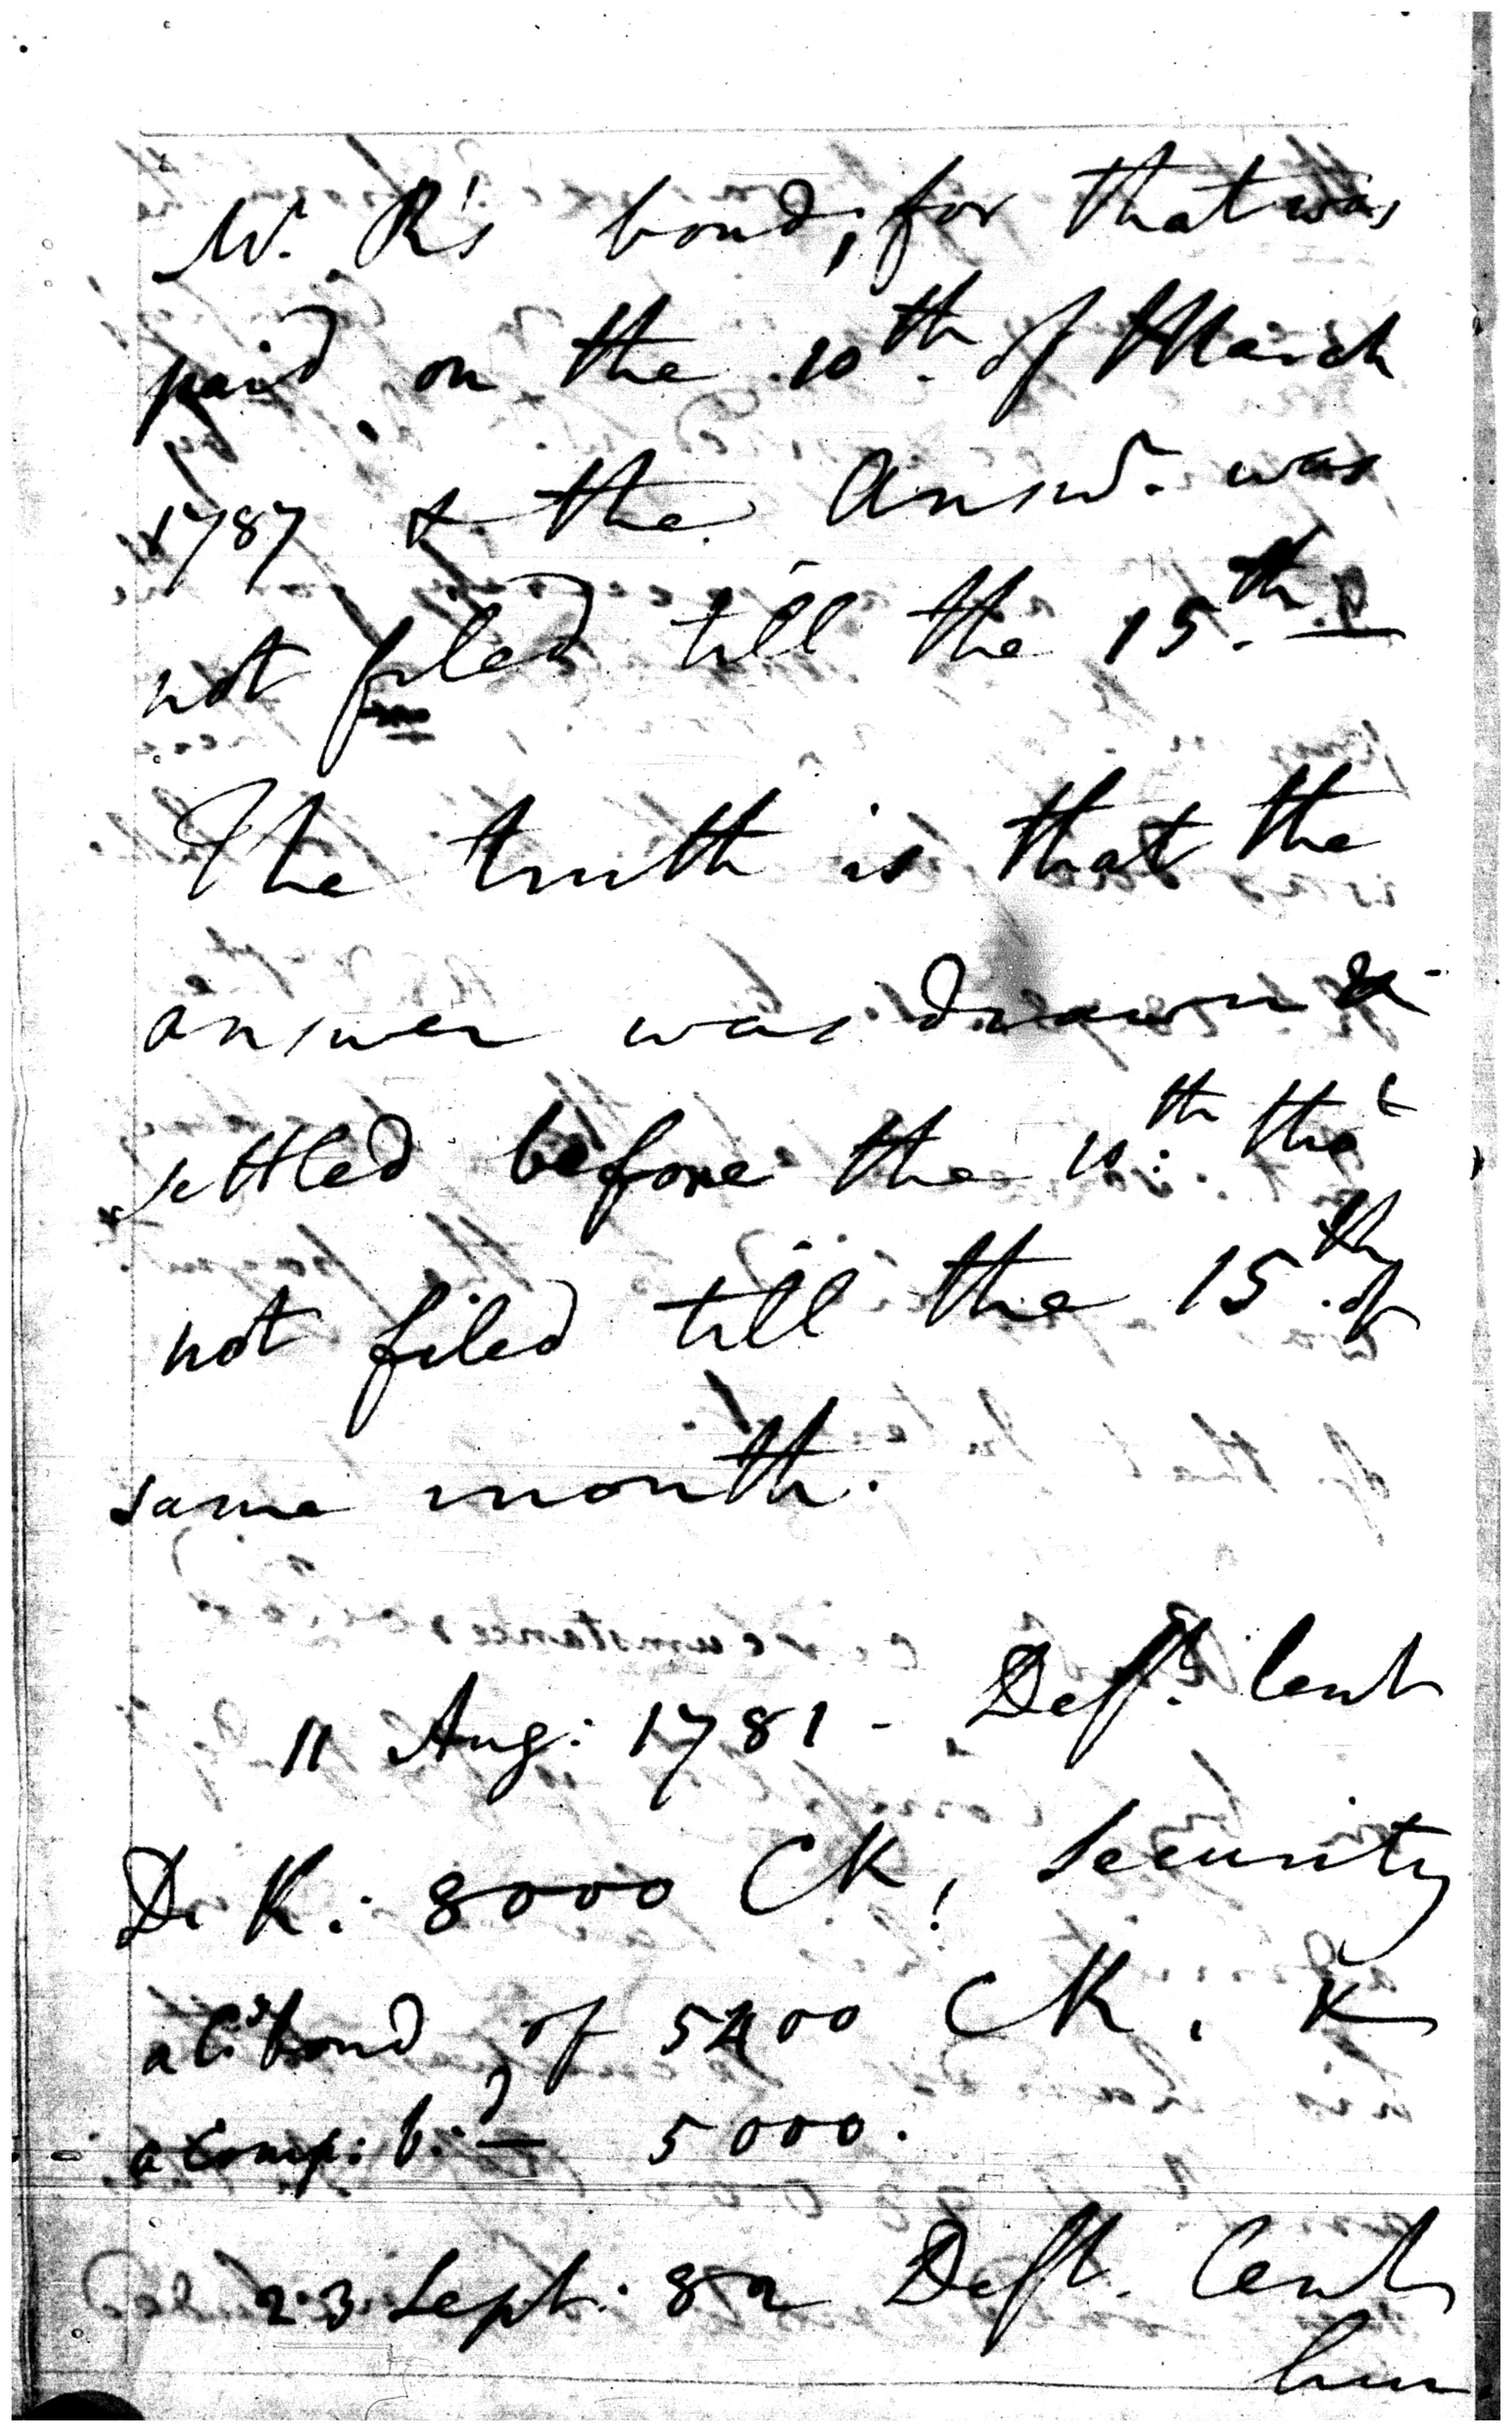 W. R's bond, for that was
paid on the 10th. of March
1787 & the Answr. was
not filed till the 15th. —
The truth is that the
answer was drawn &
settled before the 10:th tho'
not filed till the 15th. of
same month.
11 Aug: 1781 - Deft. lent
D. K: 8000 CR, Security
bond of 5400 CR. &
a Comp: b: — 5000.
23 Sept: 82 Deft. lent
him